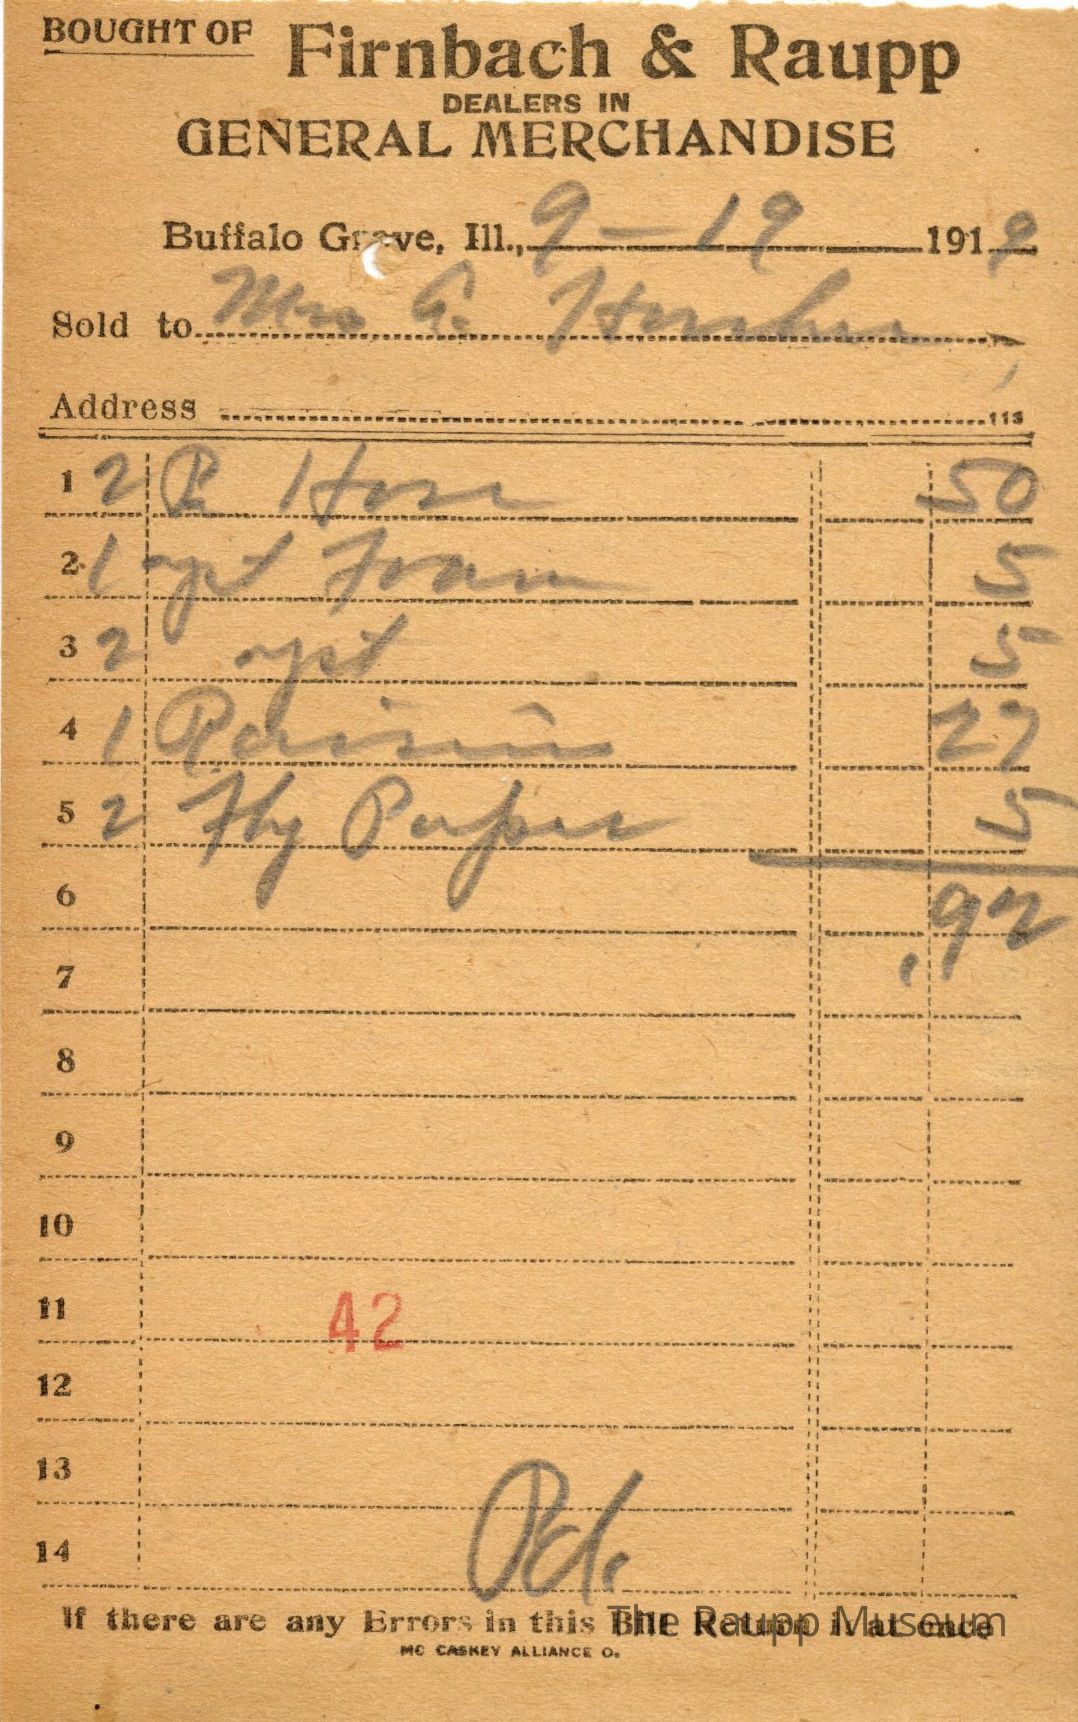 BOUGHT OF Firnbach & Raupp
DEALERS IN
GENERAL MERCHANDISE
Buffalo Grove, Ill., 9-19 1919
Sold to Mrs G.
Address 113
1 2 Pr Hose 50
2 1 Foam 5
3 2 5
4 1 Raisins 27
5 2 Fly Paper 5
6 .92
7
8
9
10
11 42
12
13
14 Pd.
If there are any Errors in this Bill Return it at once
The Raupp Museum
MC CASKEY ALLIANCE O.